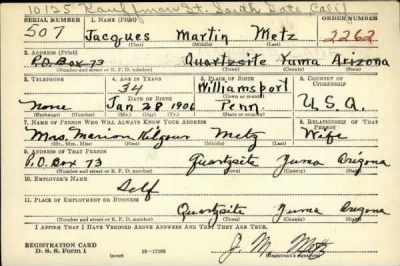 10125 Kauffman St. South Gate Calif
SERIAL NUMBER 1. NAME (Print) ORDER NUMBER
507 Jacques Martin Metz 2262
(First) (Middle) (Last)
2. ADDRESS (Print)
P.O. Box 73 Quartzsite Yuma Arizona
(Number and street or R. F. D. number) (Town) (County) (State)
3. TELEPHONE 4. AGE IN YEARS 5. PLACE OF BIRTH 6. COUNTRY OF CITIZENSHIP
34 Williamsport
DATE OF BIRTH (Town or county)
None Jan 28 1906 Penn. U.S.A.
(Exchange) (Number) (Mo.) (Day) (Yr.) (State or country)
7. NAME OF PERSON WHO WILL ALWAYS KNOW YOUR ADDRESS 8. RELATIONSHIP OF THAT PERSON
Mrs. Marion Kilgour Metz Wife
(Mr., Mrs., Miss) (First) (Middle) (Last)
9. ADDRESS OF THAT PERSON
P.O. Box 73 Quartzsite Yuma Arizona
(Number and street or R. F. D. number) (Town) (County) (State)
10. EMPLOYER'S NAME
Self
11. PLACE OF EMPLOYMENT OR BUSINESS
Quartzsite Yuma Arizona
(Number and street or R. F. D. number) (Town) (County) (State)
I AFFIRM THAT I HAVE VERIFIED ABOVE ANSWERS AND THAT THEY ARE TRUE.
REGISTRATION CARD
D. S. S. Form 1 (over) J. M. Metz
(Registrant's signature)